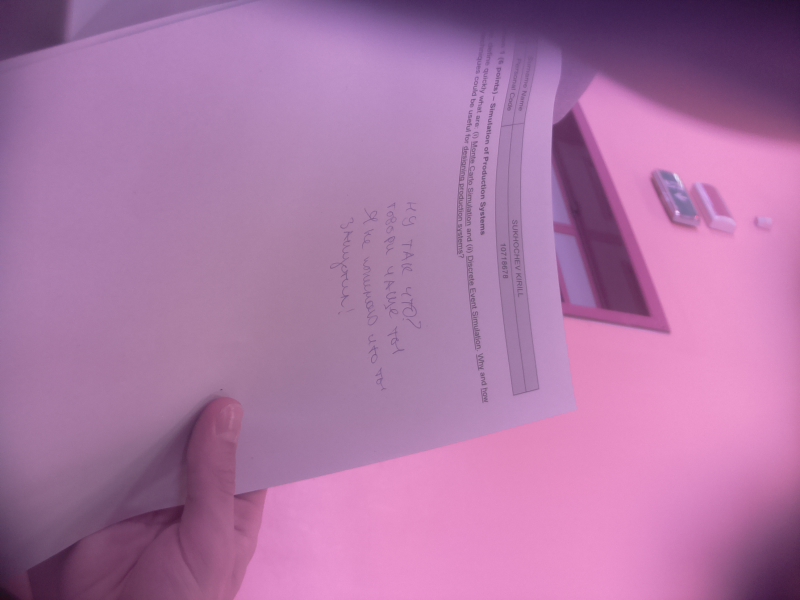 Name
Personal Code
SUKHOCHEV KIRILL
10718678
1 (8 points) – Simulation of Production Systems
quickly what are: (i) Monte Carlo Simulation and (ii) Discrete Event Simulation. Why and how
could be useful for designing production systems?
НУ ТАК ЧТО?
говори чаще ты
Я не что ты